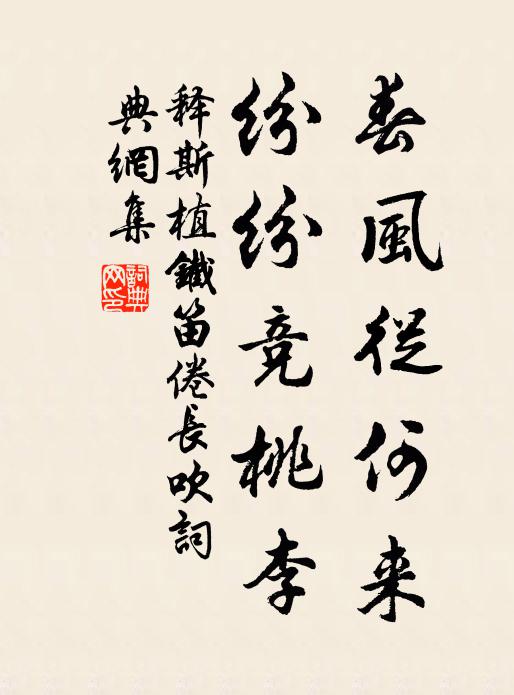 春風從何来
紛紛竞桃李
释斯植鐵笛倦長吹詞
典網集
詞典
网印